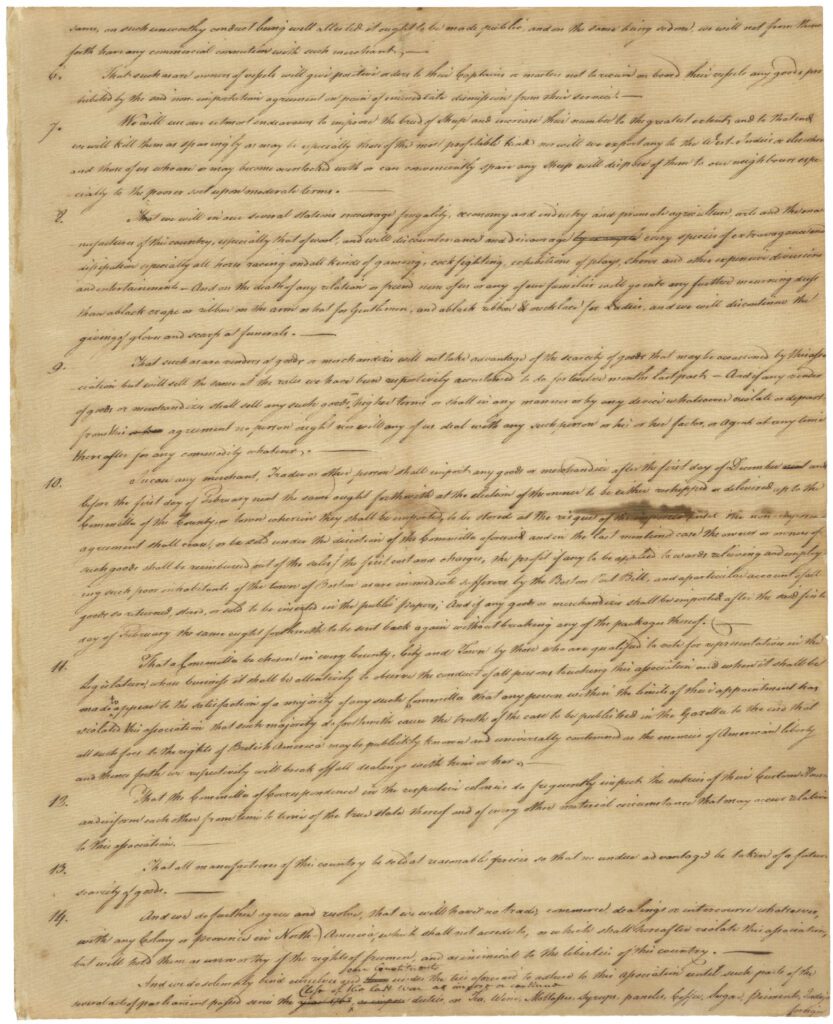 same, on such unworthy conduct being well attested it ought to be made public, and on the same being so done, we will not from thence
forth have any commercial connection with such merchant. —
6. That such as are owners of vessels will give positive orders to their Captains or masters not to receive on board their vessels any goods pro
hibited by the said non-importation agreement on pain of immediate dismission from their service. —
7. We will use our utmost endeavours to improve the breed of Sheep and increase their number to the greatest extent, and to that end
we will kill them as sparingly as may be especially those of the most profitable kind nor will we export any to the West-Indies or elsewhere
and those of us who are or may become overstocked with or can conveniently spare any Sheep will dispose of them to our neighbours espe
cially to the poorer sort upon moderate terms. —
8. That we will in our several stations encourage frugality, œconomy and industry and promote agriculture, arts and the ma
nufactures of this country, especially that of wool, and will discountenance and discourage every species of extravagance and
dissipation especially all horse racing and all kinds of gameing, cock fighting, exhibitions of plays, shews and other expensive diversions
and entertainments — And on the death of any relation or friend none of us or any of our families will go into any further mourning dress
than a black crape or ribbon on the arm or hat for Gentlemen, and a black ribbon & necklace for Ladies, and we will discontinue the
giving of gloves and scarfs at funerals. —
9. That such as are venders of goods or merchandize will not take advantage of the scarcity of goods that may be occasioned by this asso
ciation but will sell the same at the rates we have been respectively accustomed to do for twelve months last past — And if any vender
of goods or merchandize shall sell any such goods on higher terms or shall in any manner or by any device whatsoever violate or depart
from this agreement no person ought nor will any of us deal with any such person or his or her factor, or Agent at any time
thereafter for any commodity whatever. —
10. In case any merchant, Trader or other person shall import any goods or merchandize after the first day of December and
before the first day of February next the same ought forthwith at the election of the owner to be either reshipped or delivered up to the
Committee of the County, or town wherein they shall be imported, to be stored at the risque of the importer until the non-importation
agreement shall cease, or be sold under the direction of the Committee aforesaid and in the last mentioned case the owner or owners of
such goods shall be reimbursed out of the sales the first cost and charges, the profit if any to be applied towards relieving and employ
ing such poor inhabitants of the town of Boston as are immediate sufferers by the Boston Port Bill, and a particular account of all
goods so returned, stored, or sold to be inserted in the public Papers; And if any goods or merchandizes shall be imported after the said first
day of February the same ought forthwith to be sent back again without breaking any of the packages thereof. —
11. That a Committee be chosen in every County, City and Town by those who are qualified to vote for representatives in the
legislature, whose business it shall be attentively to observe the conduct of all persons touching this association and when it shall be
made to appear to the satisfaction of a majority of any such Committee that any person within the limits of their appointment has
violated this association that such majority do forthwith cause the truth of the case to be published in the Gazette to the end that
all such foes to the rights of British America may be publickly known and universally contemned as the enemies of American liberty
and thence forth we respectively will break off all dealings with him or her. —
12. That the Committee of Correspondence in the respective colonies do frequently inspect the entries of their Custom Houses
and inform each other from time to time of the true state thereof and of every other material circumstance that may occur relative
to this association. —
13. That all manufactures of this country be sold at reasonable prices so that no undue advantage be taken of a future
scarcity of goods. —
14. And we do further agree and resolve, that we will have no trade, commerce dealings or intercourse whatsoever,
with any Colony or province in North America, which shall not accede to, or which shall hereafter violate this association,
but will hold them as unworthy of the rights of freemen, and as inimical to the liberties of this country. —
our constituents
And we do solemnly bind ourselves and under the ties aforesaid to adhere to this association until such parts of the
close of the last war as impose or continue
several acts of parliament passed since the duties, on Tea, Wine, Molasses, Syrups, paneles, Coffee, Sugar, Piemento, Indigo,
foreign